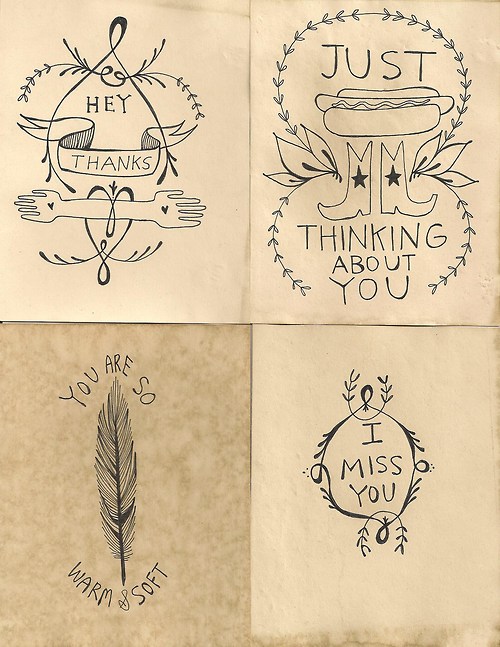 HEY
THANKS
JUST
THINKING
ABOUT
YOU
YOU ARE SO
WARM & SOFT
I
MISS
YOU